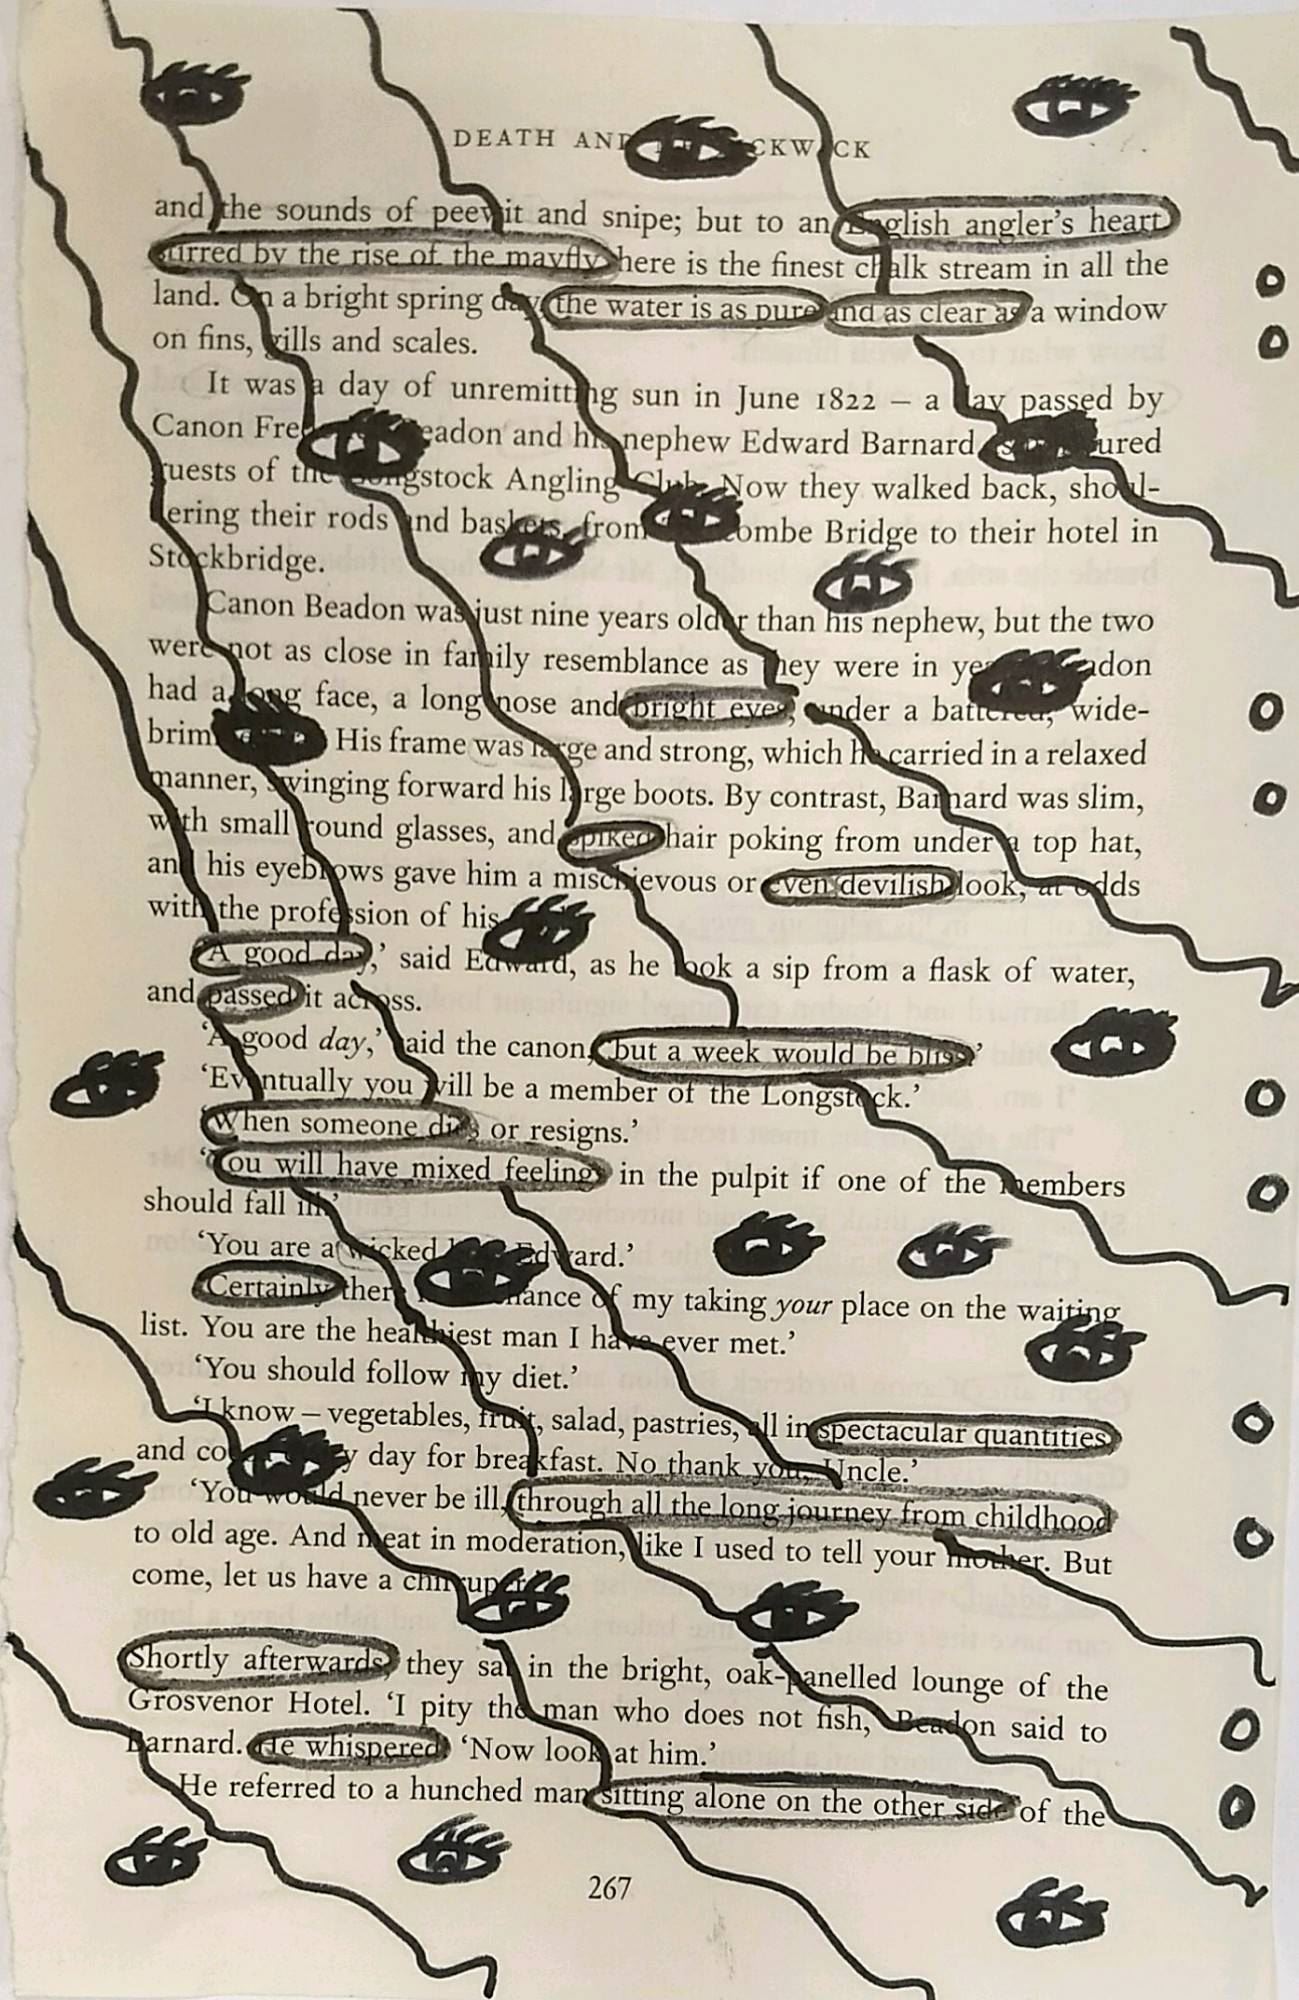 DEATH AND CKWICK
and the sounds of peewit and snipe; but to an English angler's heart
stirred by the rise of the mayfly here is the finest chalk stream in all the
land. On a bright spring day, the water is as pure and as clear as a window
on fins, gills and scales.
It was a day of unremitting sun in June 1822 – a day passed by
Canon Fre eadon and his nephew Edward Barnard, ured
guests of the ngstock Angling Club. Now they walked back, shoul-
dering their rods and baskets, from ombe Bridge to their hotel in
Stockbridge.
Canon Beadon was just nine years older than his nephew, but the two
were not as close in family resemblance as they were in ye adon
had a long face, a long nose and bright eyes, under a battered, wide-
brim His frame was large and strong, which he carried in a relaxed
manner, swinging forward his large boots. By contrast, Barnard was slim,
with small round glasses, and spiked hair poking from under a top hat,
and his eyebrows gave him a mischievous or even devilish look, at odds
with the profession of his
'A good day,' said Edward, as he took a sip from a flask of water,
and passed it across.
'A good day,' said the canon, 'but a week would be bliss.'
'Eventually you will be a member of the Longstock.'
'When someone dies or resigns.'
'You will have mixed feelings in the pulpit if one of the members
should fall ill.'
'You are a wicked Edward.'
'Certainly there chance of my taking your place on the waiting
list. You are the healthiest man I have ever met.'
'You should follow my diet.'
'I know – vegetables, fruit, salad, pastries, all in spectacular quantities
and co y day for breakfast. No thank you, Uncle.'
'You would never be ill, through all the long journey from childhood
to old age. And meat in moderation, like I used to tell your mother. But
come, let us have a chirrup
Shortly afterwards, they sat in the bright, oak-panelled lounge of the
Grosvenor Hotel. 'I pity the man who does not fish,' Beadon said to
Barnard. He whispered: 'Now look at him.'
He referred to a hunched man sitting alone on the other side of the
267